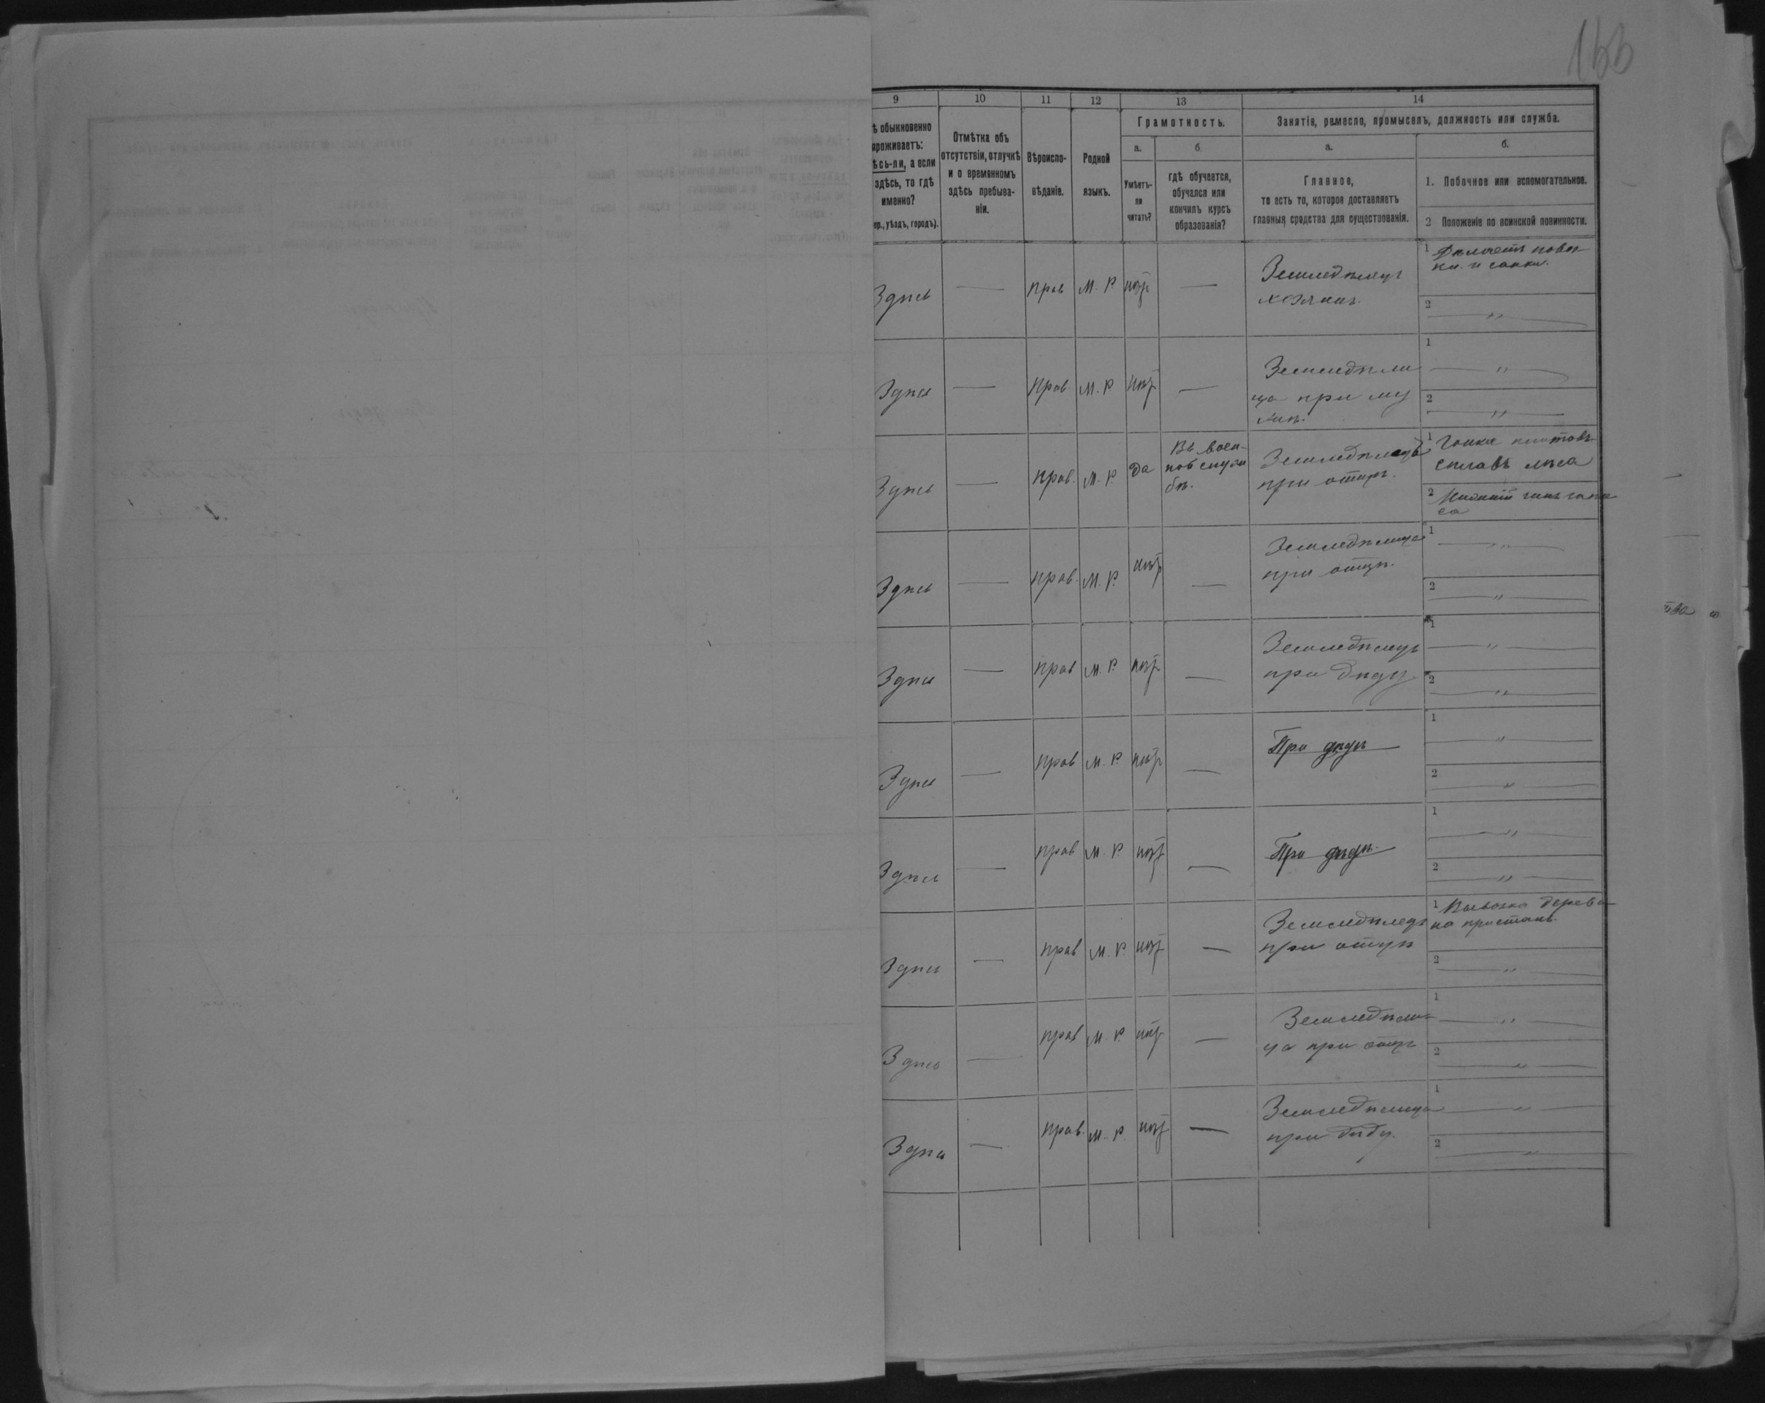 166
9 10 11 12 13 14
ѣ обыкновенно
проживаетъ:
ѣсь-ли, а если
здѣсь, то гдѣ
именно?
уѣздъ, городъ).
Отмѣтка объ
отсутствіи, отлучкѣ
и о временномъ
здѣсь пребыва-
ніи.
Вѣроиспо-
вѣданіе.
Родной
языкъ.
Грамотность.
а.
Умѣетъ-
ли
читать?
б.
гдѣ обучается,
обучался или
кончилъ курсъ
образованія?
Занятіе, ремесло, промыселъ, должность или служба.
а.
Главное,
то есть то, которое доставляетъ
главныя средства для существованія.
б.
1. Побочное или вспомогательное.
2 Положеніе по воинской повинности.
Здѣсь — Прав М. Р нѣт —
Земледѣлецъ
хозяинъ
1 Дѣлаетъ повоз-
ки и санки.
2 — " —
Здѣсь — Прав М. Р нѣт —
Земледѣли
ца при му
жѣ.
1 — " —
2 — " —
Здѣсь — Прав. М. Р да
Въ воен-
ной служ
бѣ.
Земледѣлецъ
при отцѣ.
1 Гонка плотовъ
сплавъ лѣса
2 Нижній чинъ запа
са
Здѣсь — Прав. М. Р. нѣт —
Земледѣлица
при отцѣ.
1 — " —
2 — " —
Здѣсь — Прав М. Р. нѣт —
Земледѣлецъ
при дѣду
1 — " —
2 — " —
Здѣсь — Прав М. Р нѣт —
При дѣдѣ
1 — " —
2 — " —
Здѣсь — Прав М. Р. нѣт —
При дѣдѣ.
1 — " —
2 — " —
Здѣсь — Прав М. Р. нѣт —
Земледѣлецъ
при отцѣ
1 Вывозка дерева
на пристань.
2 — " —
Здѣсь — Прав М. Р. нѣт —
Земледѣли
ца при отцѣ
1 — " —
2 — " —
Здѣсь — Прав М. Р нѣт —
Земледѣлица
при дѣду.
1 — " —
2 — " —